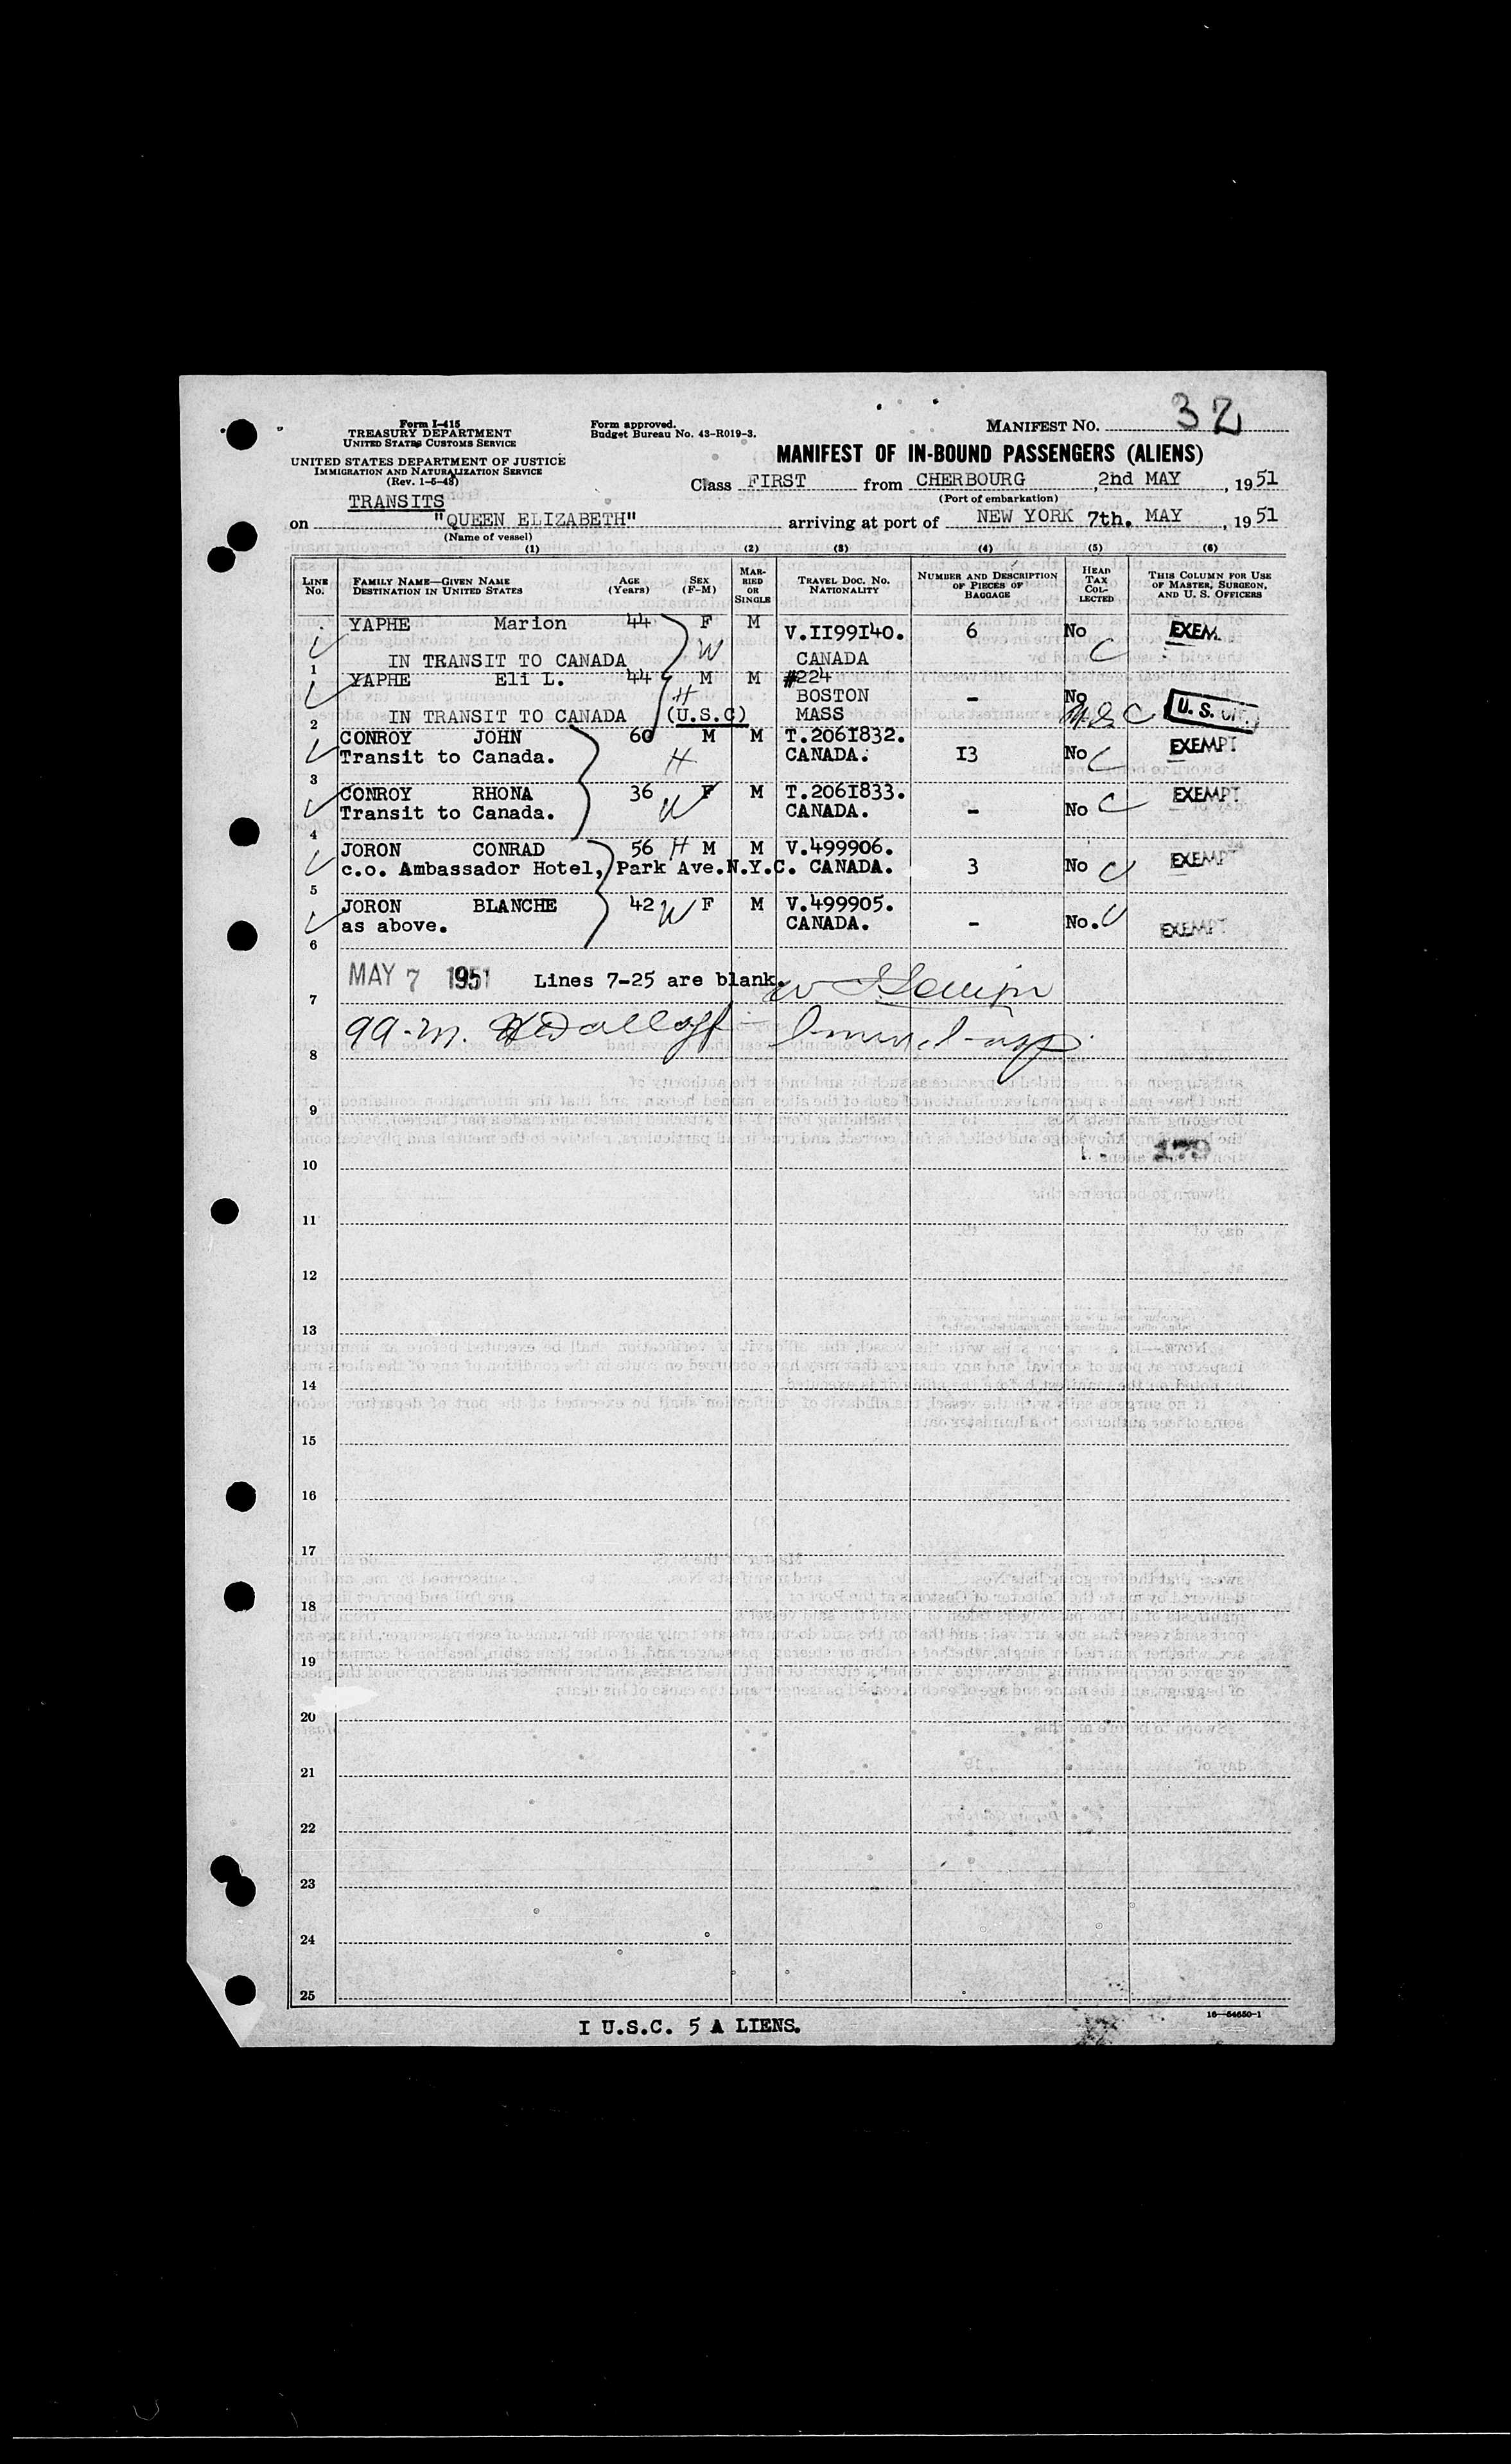 Form I-415
TREASURY DEPARTMENT
UNITED STATES CUSTOMS SERVICE
UNITED STATES DEPARTMENT OF JUSTICE
IMMIGRATION AND NATURALIZATION SERVICE
(Rev. 1-5-48)
Form approved.
Budget Bureau No. 43-R019-3.
MANIFEST NO. 32
MANIFEST OF IN-BOUND PASSENGERS (ALIENS)
Class FIRST from CHERBOURG, 2nd MAY, 1951
(Port of embarkation)
TRANSITS
on "QUEEN ELIZABETH" arriving at port of NEW YORK 7th. MAY, 1951
(Name of vessel)
(1) (2) (3) (4) (5) (6)
LINE NO. FAMILY NAME—GIVEN NAME DESTINATION IN UNITED STATES AGE (Years) SEX (F-M) MARRIED OR SINGLE TRAVEL DOC. NO. NATIONALITY NUMBER AND DESCRIPTION OF PIECES OF BAGGAGE HEAD TAX COLLECTED THIS COLUMN FOR USE OF MASTER, SURGEON, AND U. S. OFFICERS
YAPHE Marion 44 F M V.II99I40. 6 No EXEM
1 IN TRANSIT TO CANADA W CANADA C
YAPHE Eli L. 44 M M #224
H BOSTON - No
2 IN TRANSIT TO CANADA (U.S.C) MASS U.S.C U. S. CIT.
CONROY JOHN 60 M M T.206I832. EXEMPT
Transit to Canada. H CANADA. I3 No C
3
CONROY RHONA 36 F M T.206I833. EXEMPT
Transit to Canada. W CANADA. - No C
4
JORON CONRAD 56 H M M V.499906. EXEMPT
c.o. Ambassador Hotel, Park Ave.N.Y.C. CANADA. 3 No C
5
JORON BLANCHE 42 W F M V.499905.
as above. CANADA. - No. C EXEMPT
6
MAY 7 1951 Lines 7-25 are blank.
7
8
9
10 179
11
12
13
14
15
16
17
18
19
20
21
22
23
24
25
16—54650-1
I U.S.C. 5 A LIENS.